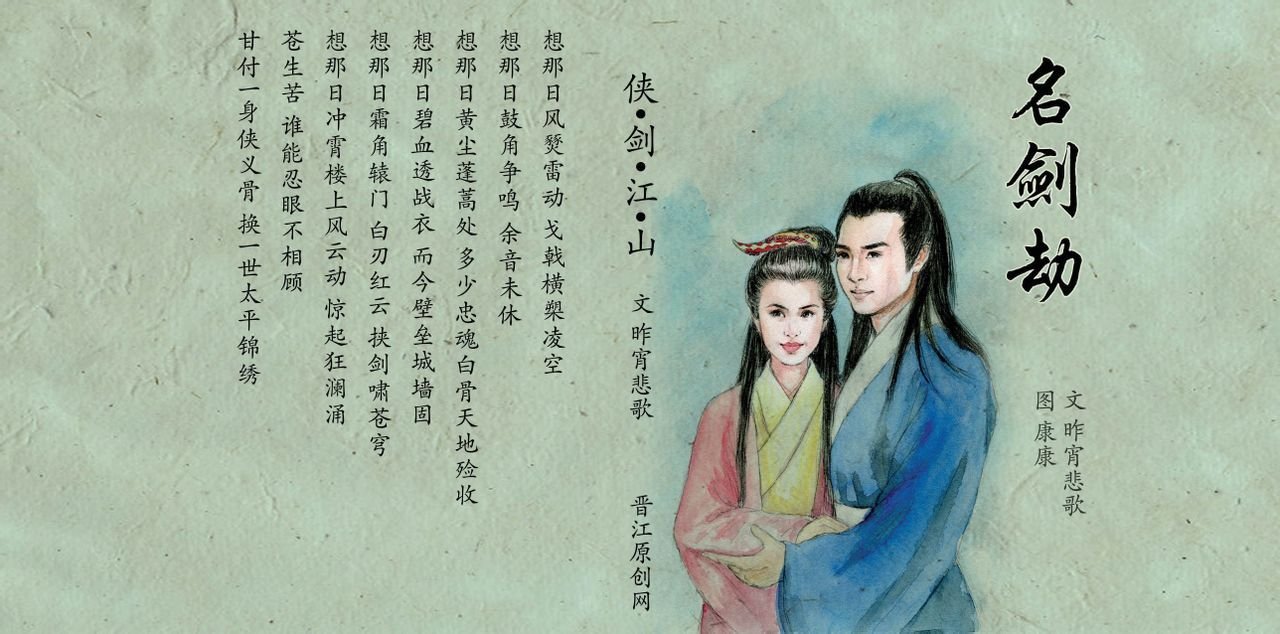 名劍劫
文 昨宵悲歌
图 康康
侠·剑·江·山
文 昨宵悲歌
晋江原创网
想那日风燹雷动 戈戟横槊凌空
想那日鼓角争鸣 余音未休
想那日黄尘蓬蒿处 多少忠魂白骨天地殓收
想那日碧血透战衣 而今壁垒城墙固
想那日霜角辕门 白刃红云 挟剑啸苍穹
想那日冲霄楼上风云动 惊起狂澜涌
苍生苦 谁能忍眼不相顾
甘付一身侠义骨 换一世太平锦绣